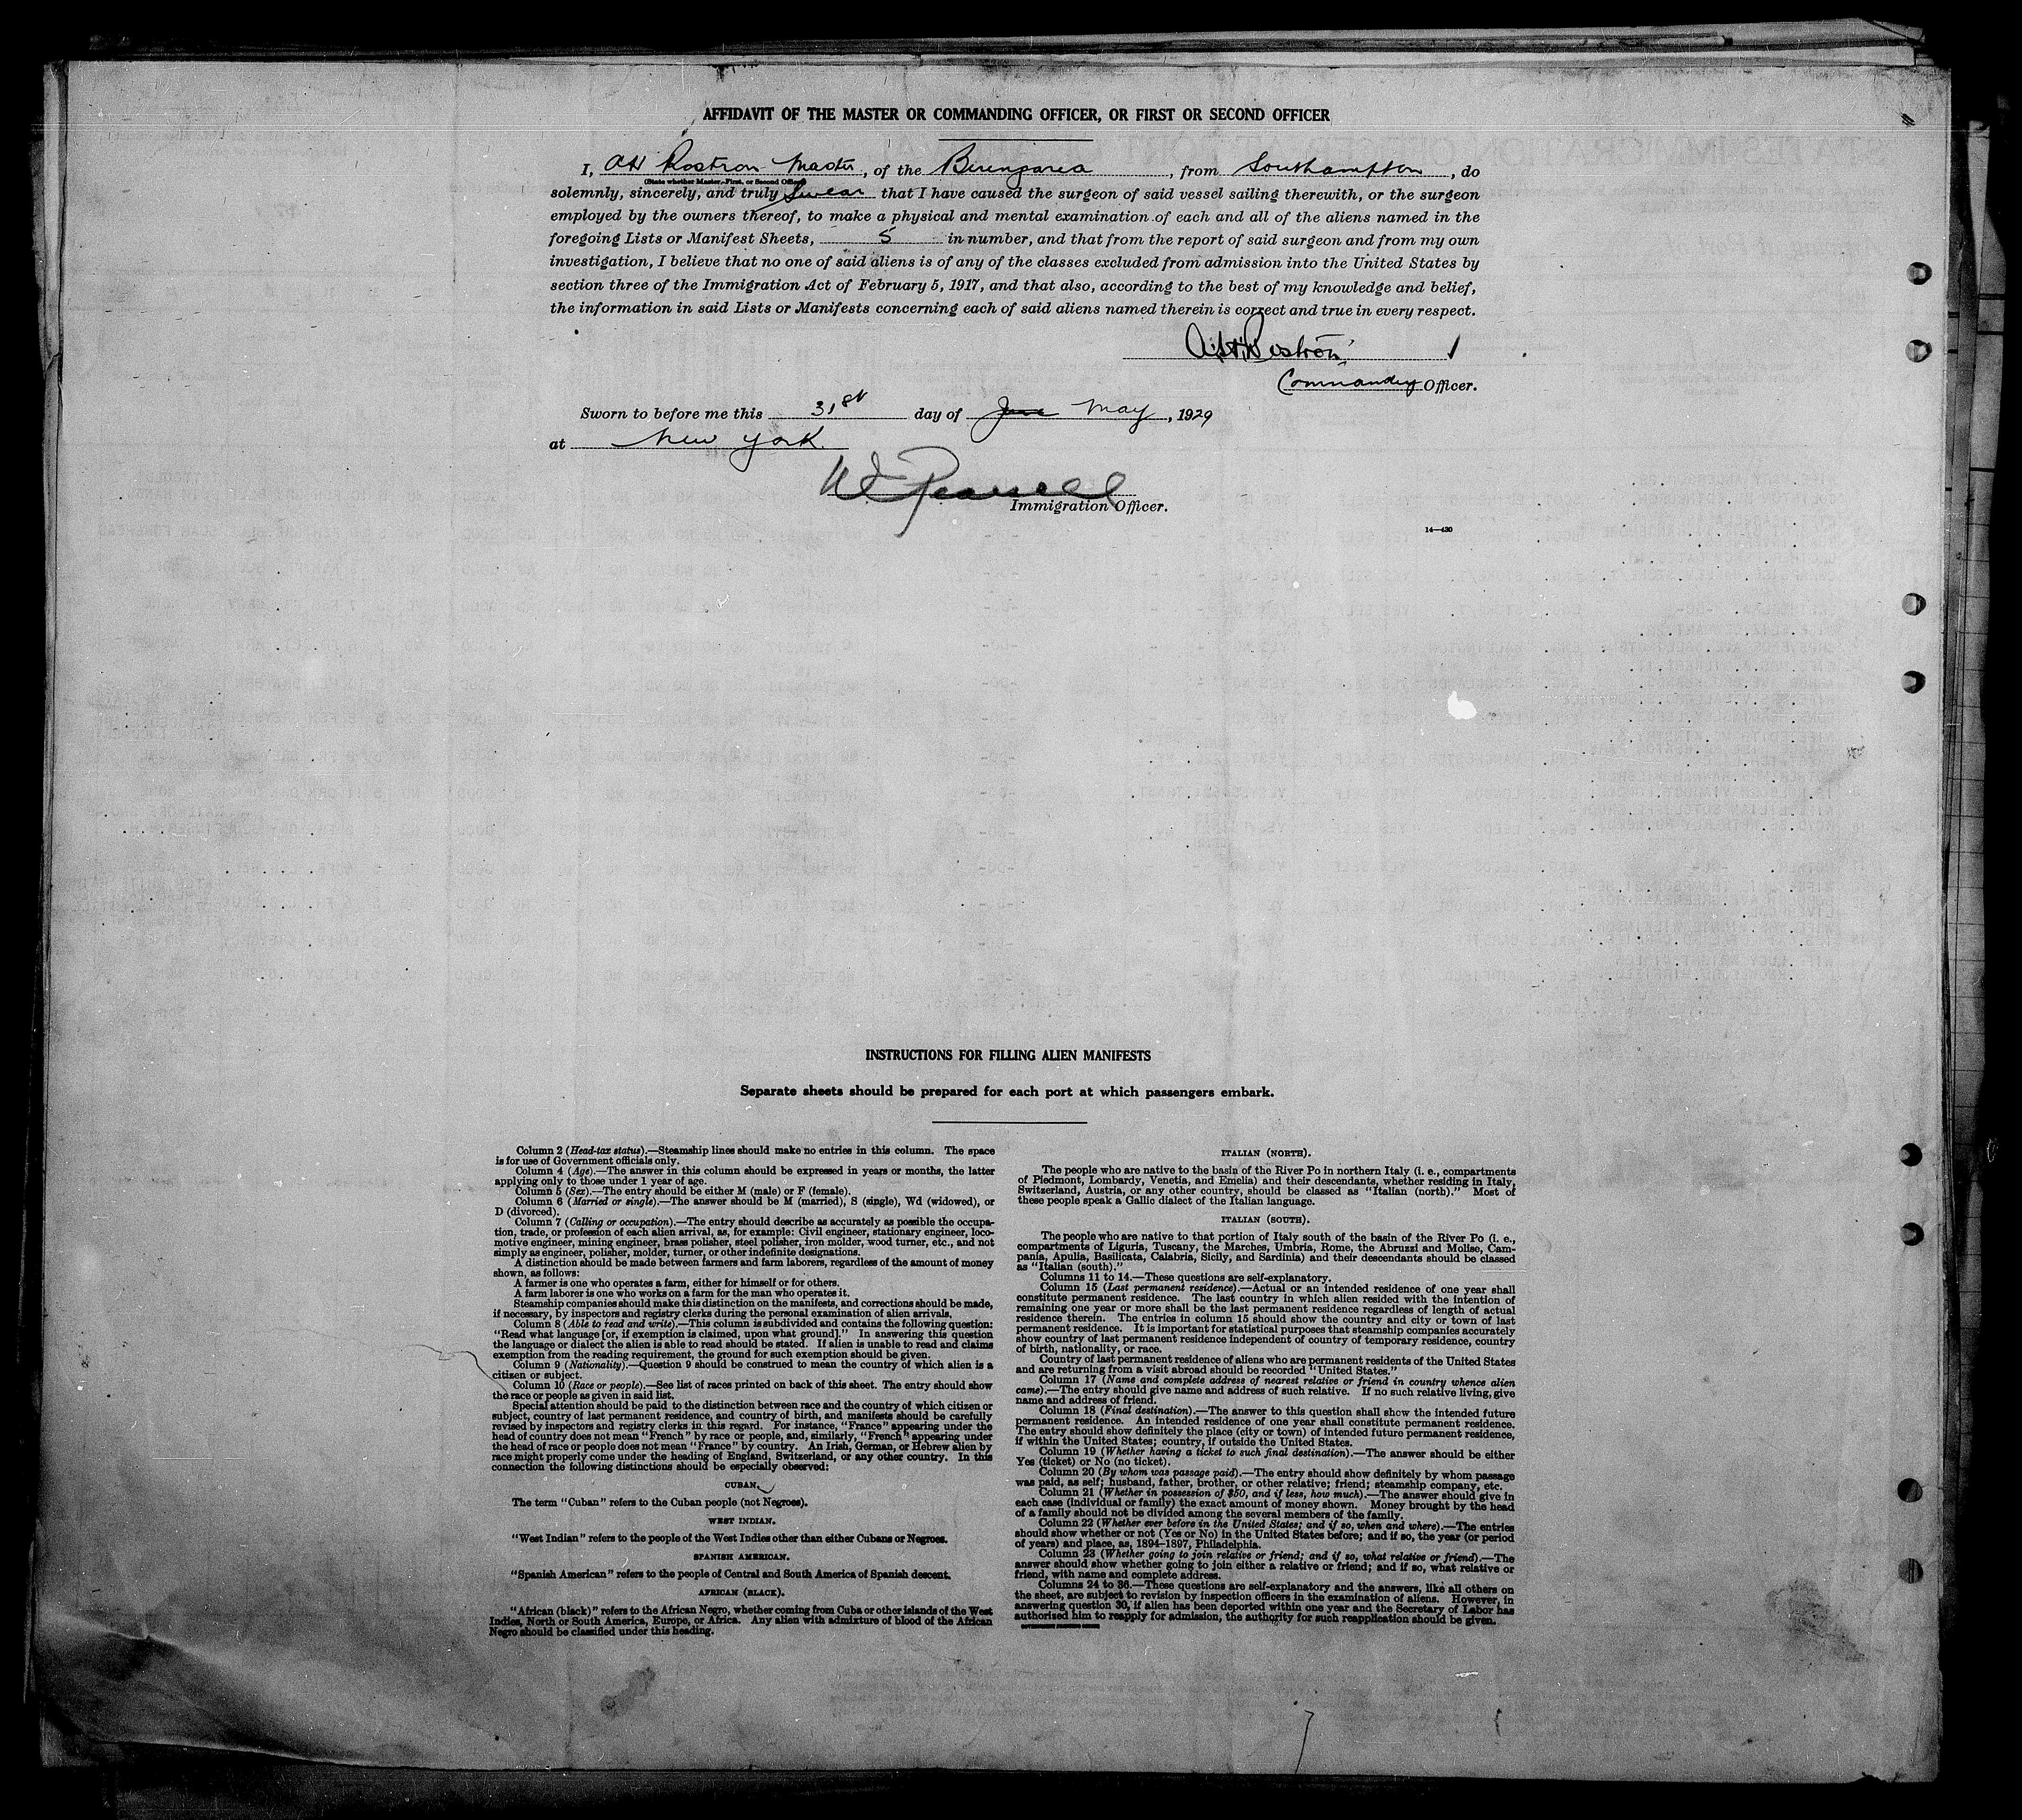 AFFIDAVIT OF THE MASTER OR COMMANDING OFFICER, OR FIRST OR SECOND OFFICER
I, AH Rostron Master, of the Berengaria, from Southampton, do
(State whether Master, First, or Second Officer)
solemnly, sincerely, and truly Swear that I have caused the surgeon of said vessel sailing therewith, or the surgeon
employed by the owners thereof, to make a physical and mental examination of each and all of the aliens named in the
foregoing Lists or Manifest Sheets, 5 in number, and that from the report of said surgeon and from my own
investigation, I believe that no one of said aliens is of any of the classes excluded from admission into the United States by
section three of the Immigration Act of February 5, 1917, and that also, according to the best of my knowledge and belief,
the information in said Lists or Manifests concerning each of said aliens named therein is correct and true in every respect.
A.H. Rostron
Commanding Officer.
Sworn to before me this 31st day of June May, 1929
at New York
Immigration Officer.
14—430
INSTRUCTIONS FOR FILLING ALIEN MANIFESTS
Separate sheets should be prepared for each port at which passengers embark.
Column 2 (Head-tax status).—Steamship lines should make no entries in this column. The space
is for use of Government officials only.
Column 4 (Age).—The answer in this column should be expressed in years or months, the latter
applying only to those under 1 year of age.
Column 5 (Sex).—The entry should be either M (male) or F (female).
Column 6 (Married or single).—The answer should be M (married), S (single), Wd (widowed), or
D (divorced).
Column 7 (Calling or occupation).—The entry should describe as accurately as possible the occupa-
tion, trade, or profession of each alien arrival, as, for example: Civil engineer, stationary engineer, loco-
motive engineer, mining engineer, brass polisher, steel polisher, iron molder, wood turner, etc., and not
simply as engineer, polisher, molder, turner, or other indefinite designations.
A distinction should be made between farmers and farm laborers, regardless of the amount of money
shown, as follows:
A farmer is one who operates a farm, either for himself or for others.
A farm laborer is one who works on a farm for the man who operates it.
Steamship companies should make this distinction on the manifests, and corrections should be made,
if necessary, by inspectors and registry clerks during the personal examination of alien arrivals.
Column 8 (Able to read and write).—This column is subdivided and contains the following question:
"Read what language [or, if exemption is claimed, upon what ground]." In answering this question
the language or dialect the alien is able to read should be stated. If alien is unable to read and claims
exemption from the reading requirement, the ground for such exemption should be given.
Column 9 (Nationality).—Question 9 should be construed to mean the country of which alien is a
citizen or subject.
Column 10 (Race or people).—See list of races printed on back of this sheet. The entry should show
the race or people as given in said list.
Special attention should be paid to the distinction between race and the country of which citizen or
subject, country of last permanent residence, and country of birth, and manifests should be carefully
revised by inspectors and registry clerks in this regard. For instance, "France" appearing under the
head of country does not mean "French" by race or people, and, similarly, "French" appearing under
the head of race or people does not mean "France" by country. An Irish, German, or Hebrew alien by
race might properly come under the heading of England, Switzerland, or any other country. In this
connection the following distinctions should be especially observed:
CUBAN.
The term "Cuban" refers to the Cuban people (not Negroes).
WEST INDIAN.
"West Indian" refers to the people of the West Indies other than either Cubans or Negroes.
SPANISH AMERICAN.
"Spanish American" refers to the people of Central and South America of Spanish descent.
AFRICAN (BLACK).
"African (black)" refers to the African Negro, whether coming from Cuba or other islands of the West
Indies, North or South America, Europe, or Africa. Any alien with admixture of blood of the African
Negro should be classified under this heading.
ITALIAN (NORTH).
The people who are native to the basin of the River Po in northern Italy (i. e., compartments
of Piedmont, Lombardy, Venetia, and Emelia) and their descendants, whether residing in Italy,
Switzerland, Austria, or any other country, should be classed as "Italian (north)." Most of
these people speak a Gallic dialect of the Italian language.
ITALIAN (SOUTH).
The people who are native to that portion of Italy south of the basin of the River Po (i. e.,
compartments of Liguria, Tuscany, the Marches, Umbria, Rome, the Abruzzi and Molise, Cam-
pania, Apulia, Basilicata, Calabria, Sicily, and Sardinia) and their descendants should be classed
as "Italian (south)."
Columns 11 to 14.—These questions are self-explanatory.
Column 15 (Last permanent residence).—Actual or an intended residence of one year shall
constitute permanent residence. The last country in which alien resided with the intention of
remaining one year or more shall be the last permanent residence regardless of length of actual
residence therein. The entries in column 15 should show the country and city or town of last
permanent residence. It is important for statistical purposes that steamship companies accurately
show country of last permanent residence independent of country of temporary residence, country
of birth, nationality, or race.
Country of last permanent residence of aliens who are permanent residents of the United States
and are returning from a visit abroad should be recorded "United States."
Column 17 (Name and complete address of nearest relative or friend in country whence alien
came).—The entry should give name and address of such relative. If no such relative living, give
name and address of friend.
Column 18 (Final destination).—The answer to this question shall show the intended future
permanent residence. An intended residence of one year shall constitute permanent residence.
The entry should show definitely the place (city or town) of intended future permanent residence,
if within the United States; country, if outside the United States.
Column 19 (Whether having a ticket to such final destination).—The answer should be either
Yes (ticket) or No (no ticket).
Column 20 (By whom was passage paid).—The entry should show definitely by whom passage
was paid, as self; husband, father, brother, or other relative; friend; steamship company, etc.
Column 21 (Whether in possession of $50, and if less, how much).—The answer should give in
each case (individual or family) the exact amount of money shown. Money brought by the head
of a family should not be divided among the several members of the family.
Column 22 (Whether ever before in the United States; and if so, when and where).—The entries
should show whether or not (Yes or No) in the United States before; and if so, the year (or period
of years) and place, as, 1894-1897, Philadelphia.
Column 23 (Whether going to join relative or friend; and if so, what relative or friend).—The
answer should show whether going to join either a relative or friend; and if so, what relative or
friend, with name and complete address.
Columns 24 to 36.—These questions are self-explanatory and the answers, like all others on
the sheet, are subject to revision by inspection officers in the examination of aliens. However, in
answering question 30, if alien has been deported within one year and the Secretary of Labor has
authorized him to reapply for admission, the authority for such reapplication should be given.
GOVERNMENT PRINTING OFFICE